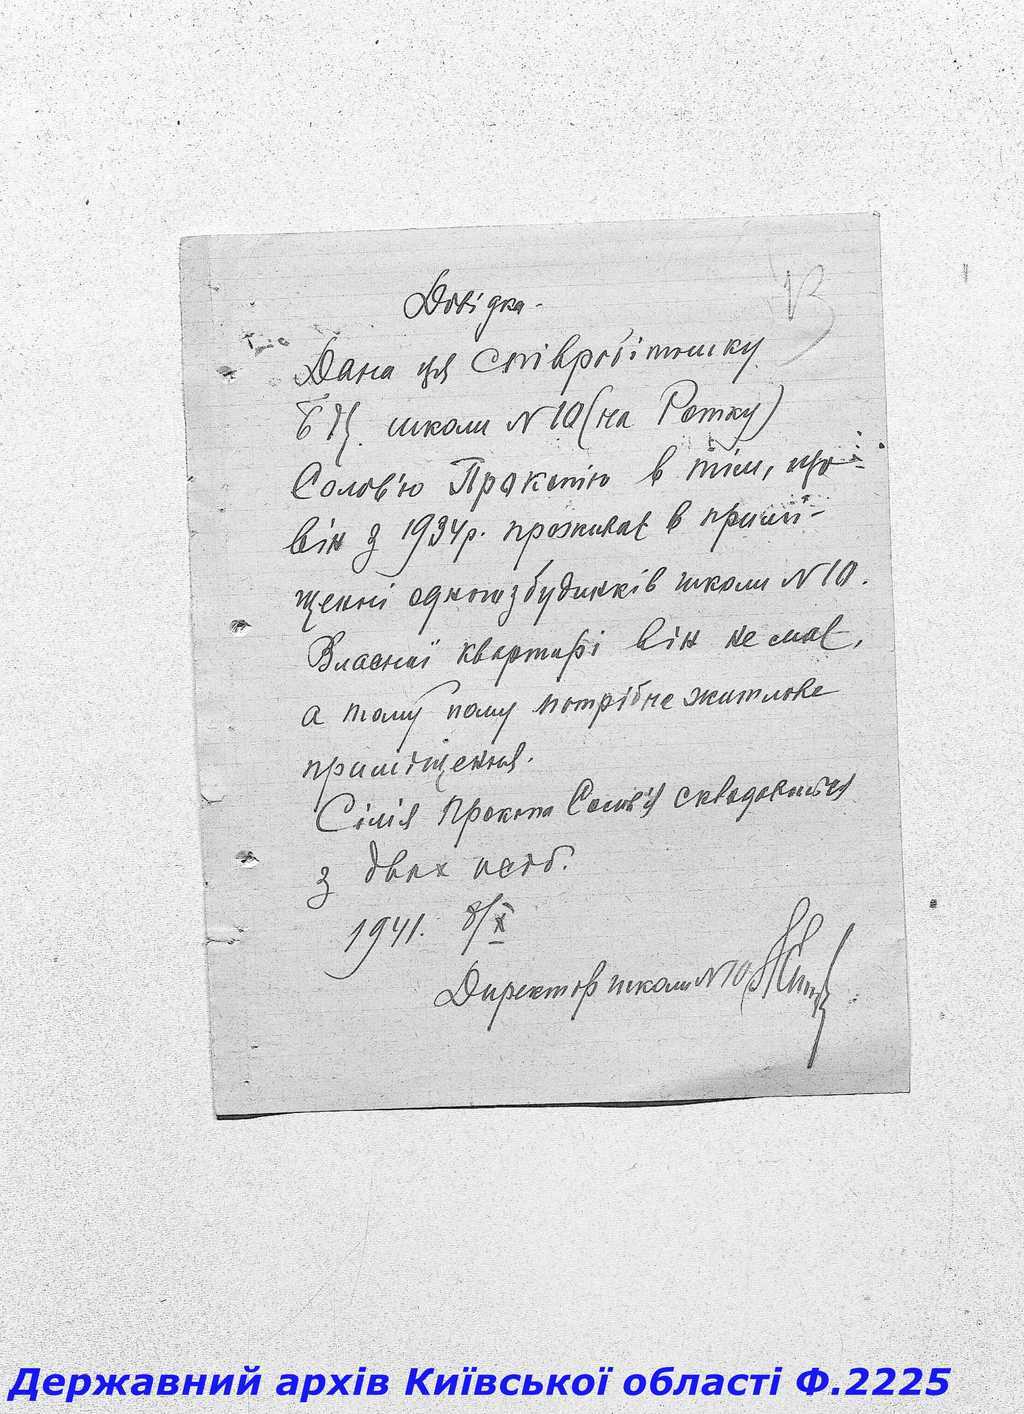 13
Довідка.
Дана ця співробітнику
БЦ. школи N 10 (на Ротку)
Солов'ю Прокопію в тім, що
він з 1934 р. проживає в примі-
щенні одного з будинків школи N 10.
Власної квартирі він не має,
а тому йому потрібне житлове
приміщення.
Сімія Прокопа Солов'я
з двох осіб.
1941. 8/X
Директор школи N 10
Державний архів Київської області Ф.2225